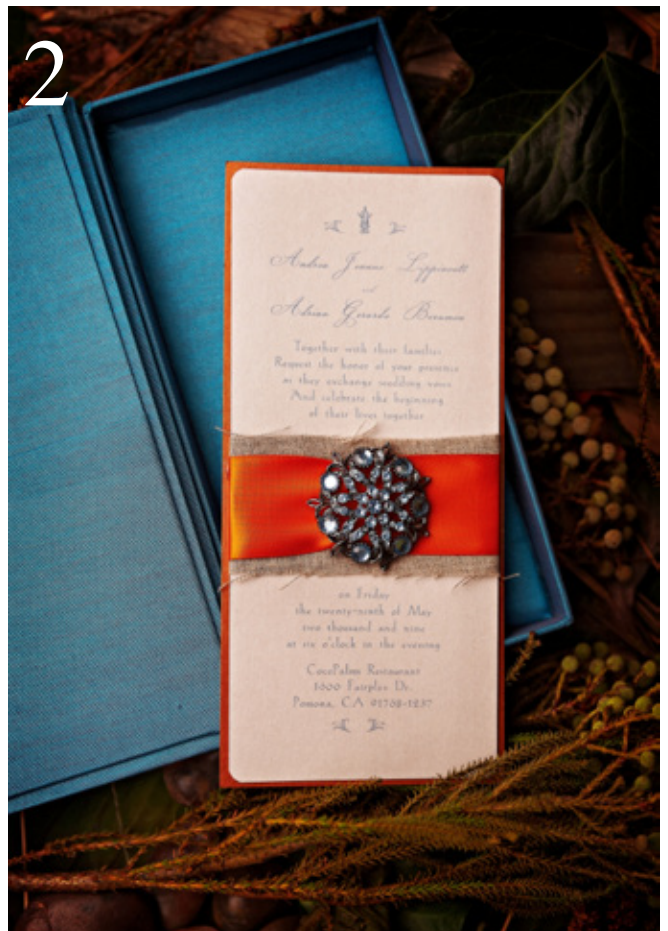 2
Andrea Jeanne Lippincott
and
Adrian Gerardo
Together with their families
Request the honor of your presence
as they exchange wedding vows
And celebrate the beginning
of their lives together
on Friday
the twenty-ninth of May
two thousand and nine
at six o'clock in the evening
CocoPalms Restaurant
1600 Fairplex Dr.
Pomona, CA 91768-1237